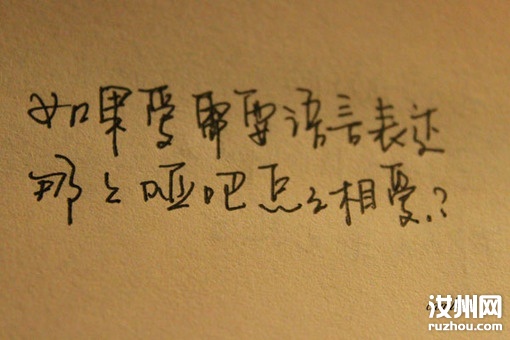 如果爱需要语言表达
那么哑吧怎么相爱.?
汝州网
ruzhou.com